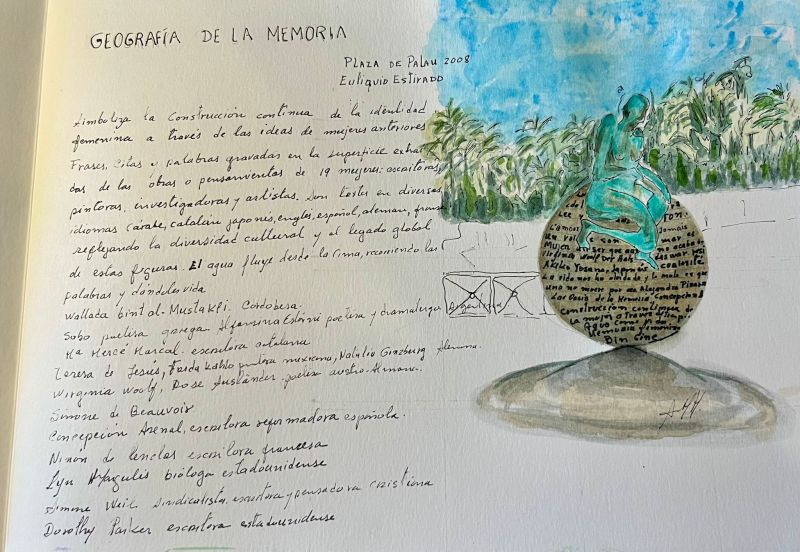 GEOGRAFÍA DE LA MEMORIA
PLAZA DE PALAU 2008
Eutiquio Estirado
Simboliza la Construcción continua de la identidad
femenina a través de las ideas de mujeres anteriores
Frases, Citas y palabras gravadas en la superficie extraí
das de las obras o pensamientos de 19 mujeres: escritoras,
pintoras, investigadoras y artistas. Son textos en diversos
idiomas (árabe, catalán japonés, inglés, español, aleman, francés
reflejando la diversidad cultural y el legado global
de estas figuras. El agua fluye desde la cima, recorriendo las
palabras y dándoles vida
Wallada bint al-Mustakfi. Cordobesa.
Safo poetisa griega. Alfonsina Estorni poetisa y dramaturga Argentina
Mª Mercé Marçal. escritora catalana
Teresa de Jesus, Frida Kahlo pintora mexicana, Natalia Ginzburg Alemana.
Wirginia Woolf, Rose Ausländer poetisa austro-Alemana.
Simone de Beauvoir
Concepción Arenal, escritora reformadora española.
Ninón de lenclos escritora francesa
Lyn Margulis bióloga estadounidense
Simone Weil sindicalista, escritora y pensadora cristiana
Dorothy Parker escritora estadounidense
L'amor jamais
un vol con mar es
Mujer
Akiko Yosano Japonés
La vida nos ha olvidado y lo malo es que
uno no muere por eso Alejandra Pizar
Construcción continua de
la mujer a través
Agua como
Memoria femenina